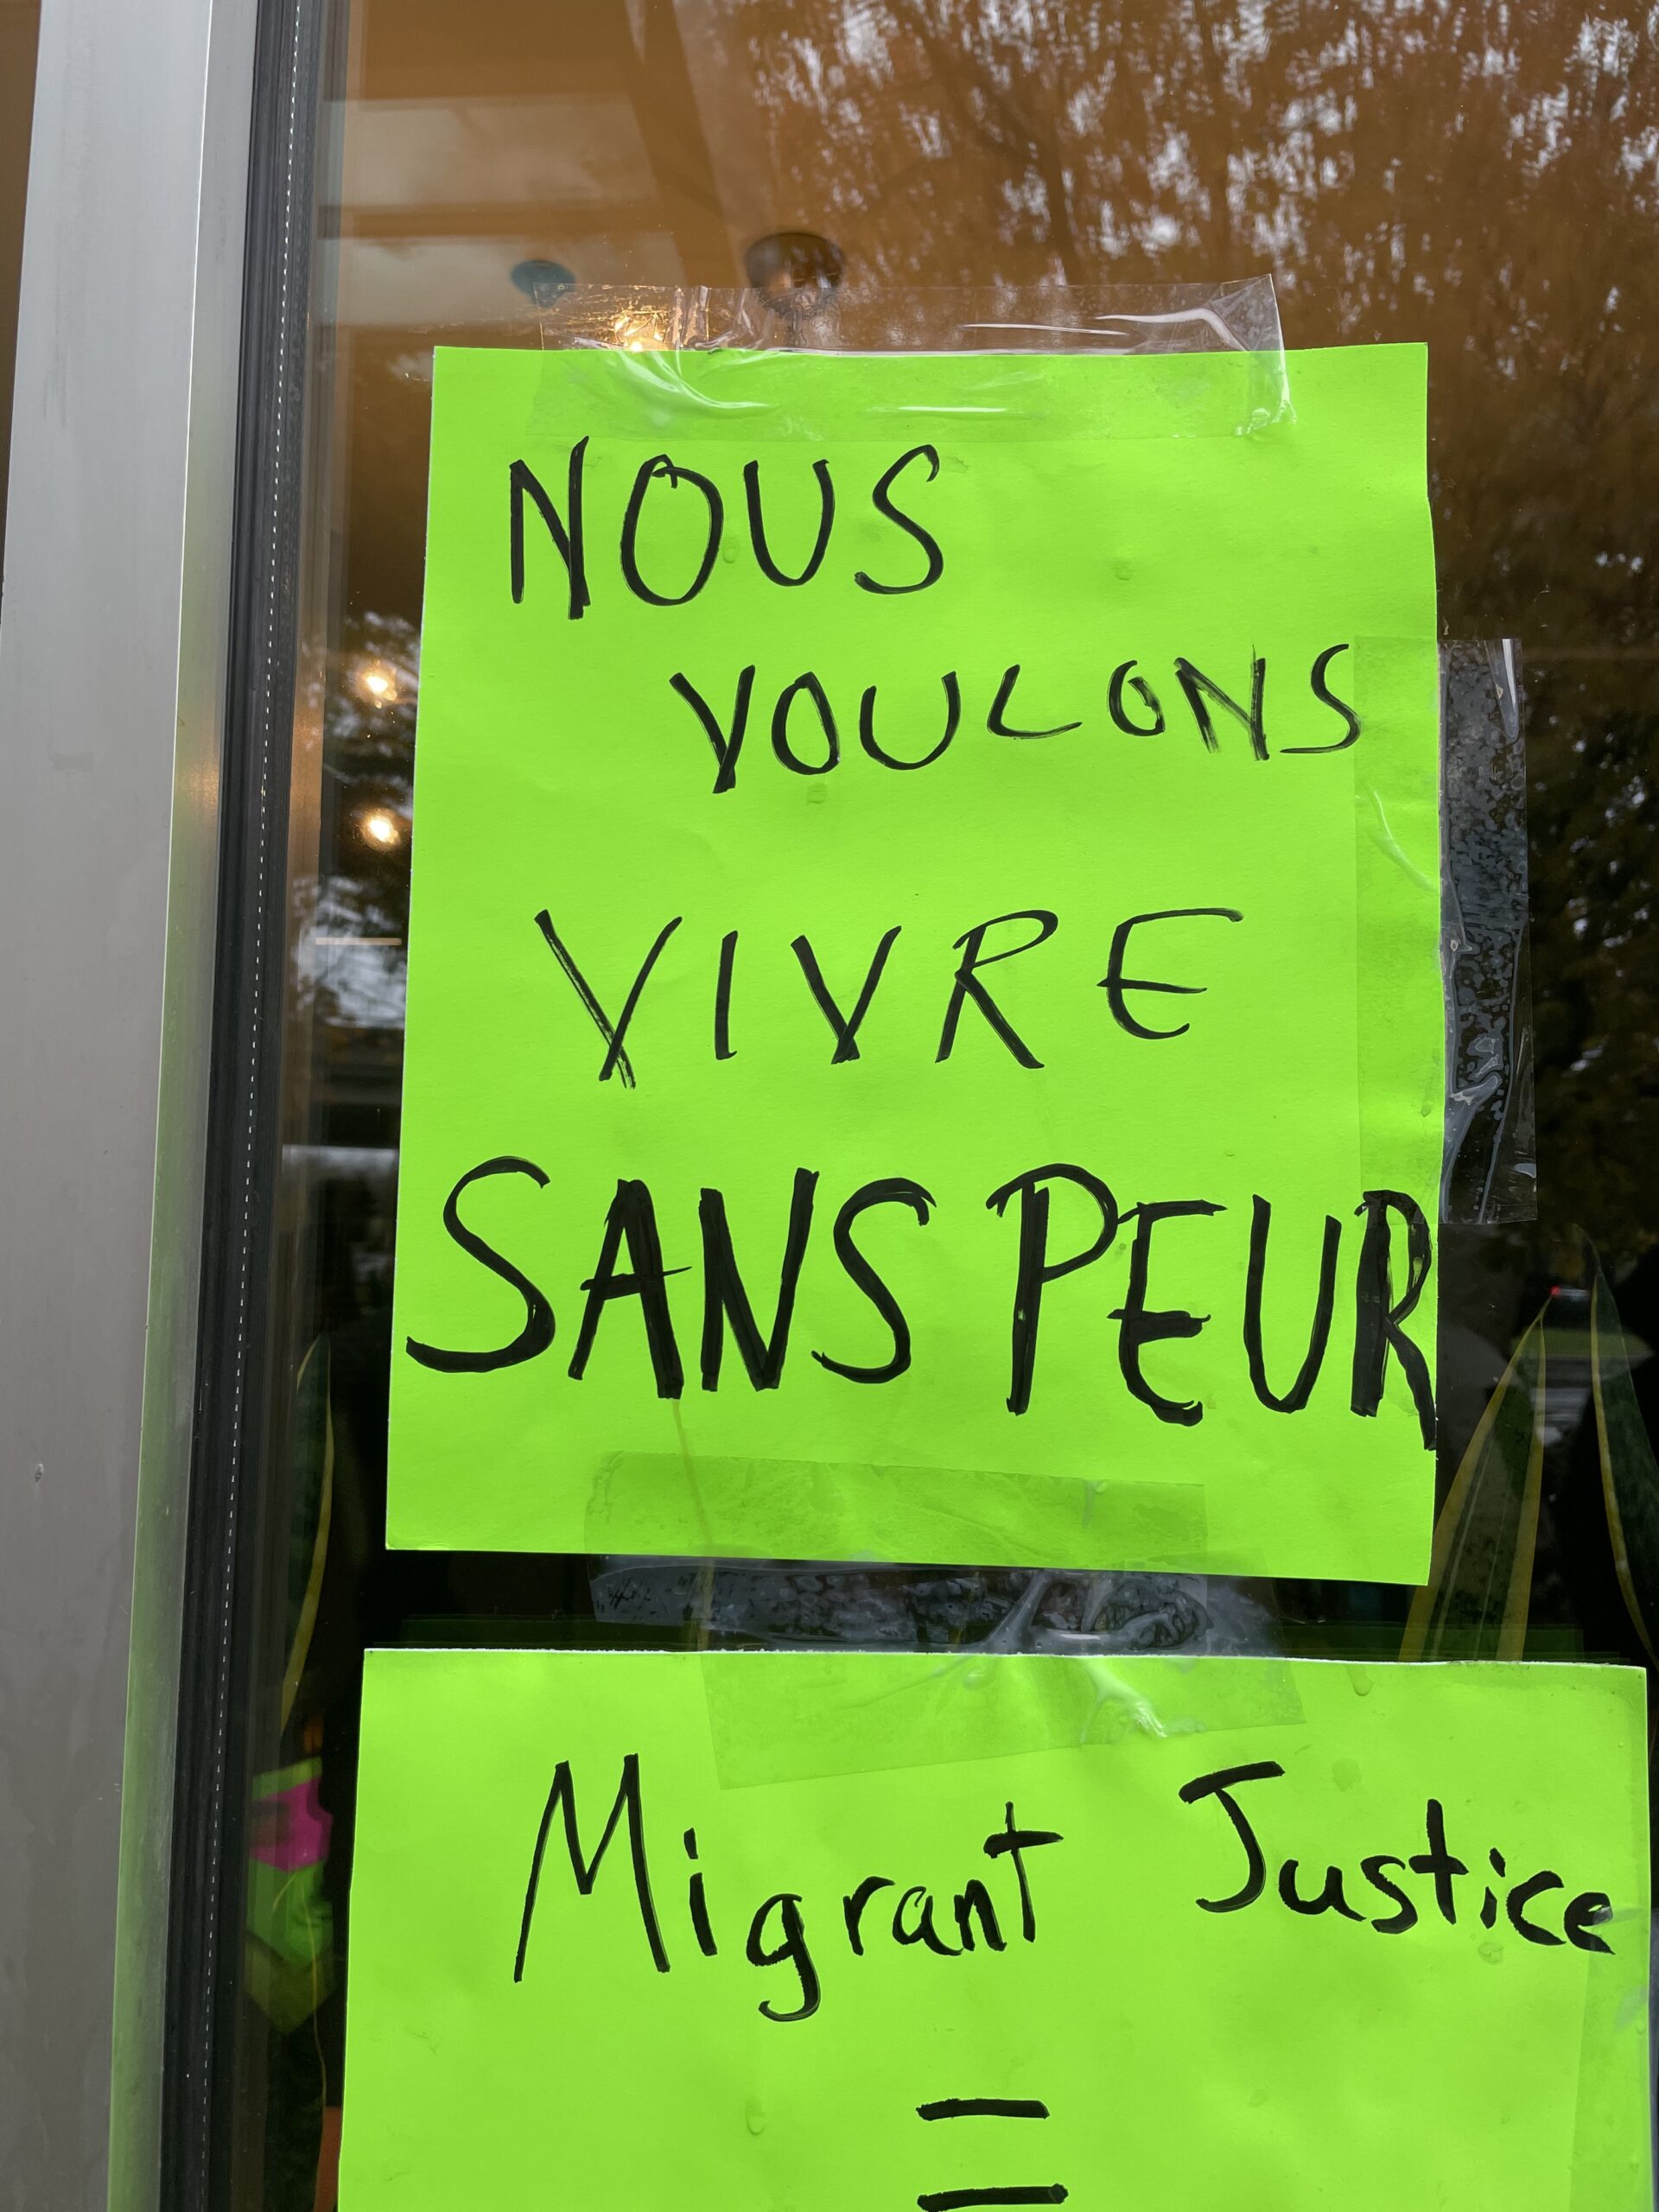 NOUS
VOULONS
VIVRE
SANS PEUR
Migrant Justice
=